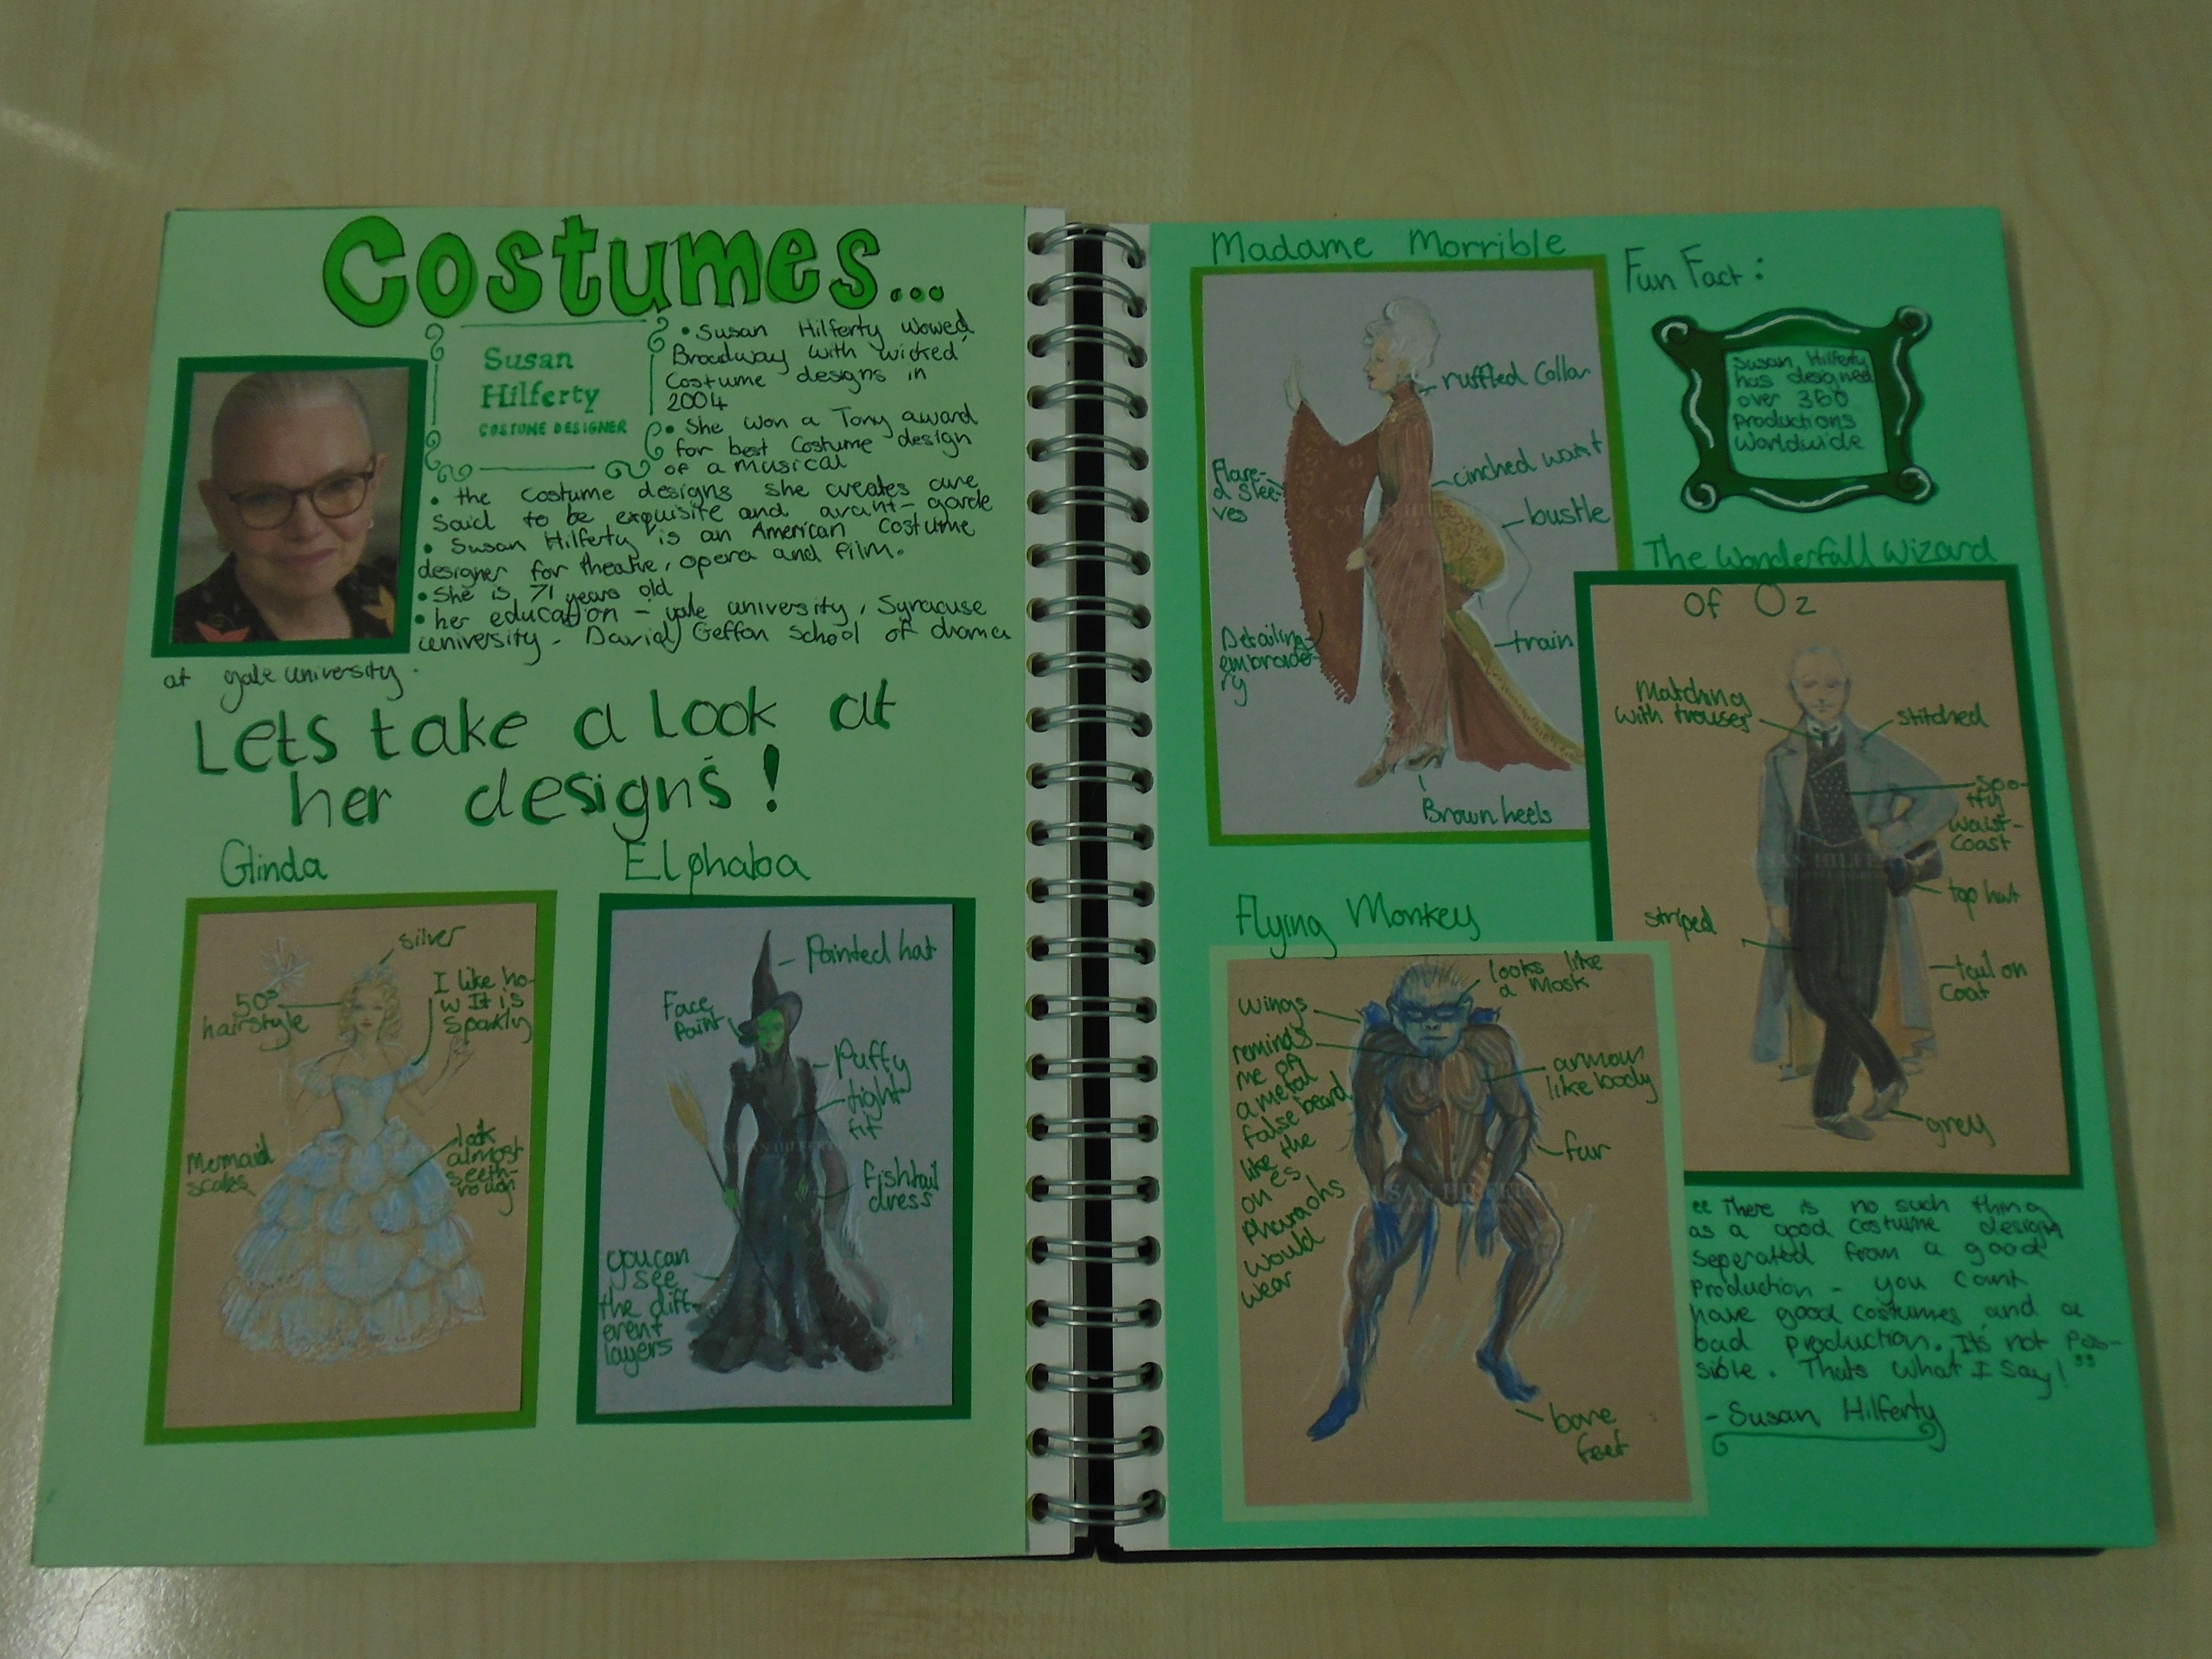 Costumes...
Susan
Hilferty
COSTUME DESIGNER
• Susan Hilferty wowed
Broadway with 'wicked'
Costume designs in
2004
• She won a Tony award
for best Costume design
of a musical
• the costume designs she creates are
said to be exquisite and avant-garde
• Susan Hilferty is an American Costume
designer for theatre, opera and film.
• She is 71 years old
• her education - yale university, Syracuse
university - David Geffon School of drama
at yale university.
Lets take a look at
her designs!
Glinda
silver
50s
hairstyle
I like ho-
w It is
Sparkly
Mermaid
scales
look
almost
seeth-
rough
Elphaba
Pointed hat
Face
Paint
Puffy
tight
fit
fishtail
dress
you can
see
the diff-
erent
layers
Madame Morrible
ruffled Collar
cinched waist
Flare-
d Slee-
ves
bustle
Detailing
embroide-
ry
train
Brown heels
Fun Fact:
Susan Hilferty
has designed
over 360
Productions
Worldwide
The Wonderfall Wizard
Of Oz
Matching
with trouser
stitched
Spo-
tty
waist-
Coast
top hat
striped
tail on
Coat
grey
Flying Monkey
looks like
a mask
wings
reminds
me of
a metal
false beard
like the
ones
pharaohs
would
wear
armour
like body
fur
bare
feet
"There is no such thing
as a good costume design
seperated from a good
Production - you cant
have good costumes and a
bad production. It's not Pos-
sible. Thats what I say!"
- Susan Hilferty